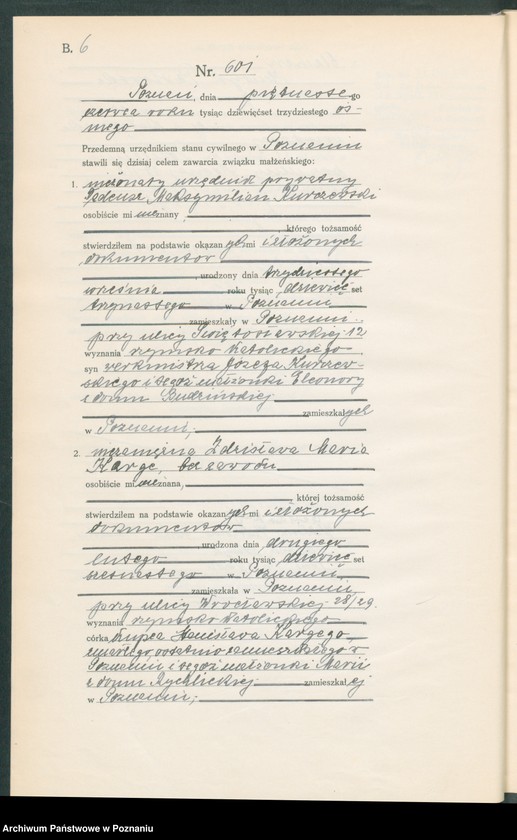 B. 6
Nr. 601
Poznań, dnia piętnastego
czerwca roku tysiąc dziewięćset trzydziestego ós-
mego
Przedemną urzędnikiem stanu cywilnego w Poznaniu
stawili się dzisiaj celem zawarcia związku małżeńskiego:
1. nieżonaty urzędnik prywatny
Tadeusz Maksymilian Kurczewski
osobiście mi nieznany,
którego tożsamość
stwierdziłem na podstawie okazanych mi i złożonych
dokumentów
, urodzony dnia trzydziestego
września roku tysiąc dziewięćset
trzynastego w Poznaniu,
zamieszkały w Poznaniu
przy ulicy Świętosławskiej 12
wyznania rzymsko katolickiego
syn werkmistrza Józefa Kurczew-
skiego i tegoż małżonki Eleonory
z domu Budzińskiej
zamieszkałych
w Poznaniu;
2. niezamężna Zdzisława Maria
Karge, bez zawodu
osobiście mi nieznana,
, której tożsamość
stwierdziłem na podstawie okazanych mi i złożonych
dokumentów
, urodzona dnia drugiego
lutego roku tysiąc dziewięćset
w Poznaniu
zamieszkała w Poznaniu,
przy ulicy Wrocławskiej 28/29.
wyznania rzymsko katolickiego
córka kupca Stanisława Kargego,
zmarłego ostatnio zamieszkałego w
Poznaniu i tegoż małżonki Marii
z domu Rychlickiej zamieszkałej
w Poznaniu;
Archiwum Państwowe w Poznaniu